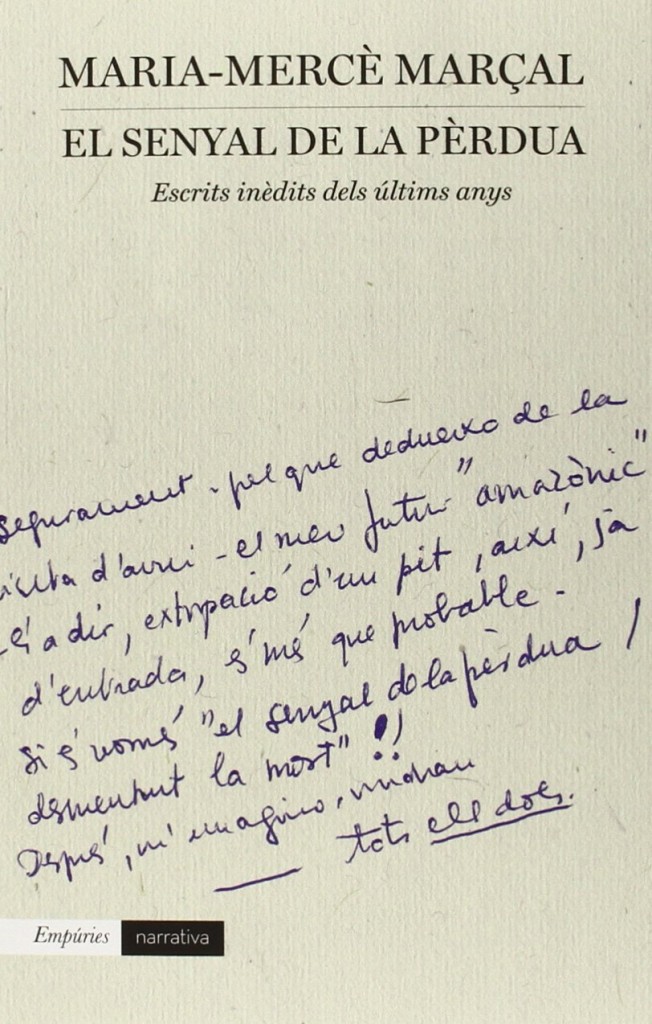 MARIA-MERCÈ MARÇAL
EL SENYAL DE LA PÈRDUA
Escrits inèdits dels últims anys
segurament - pel que dedueixo de la
visita d'avui - el meu futur "amazònic"
-és a dir, extirpació d'un pit, així, ja
d'entrada, és més que probable -
Si és només "el senyal de la pèrdua /
desmentint la mort" !!
Després, m'imagino, vindran
tots ells dols.
Empúries narrativa